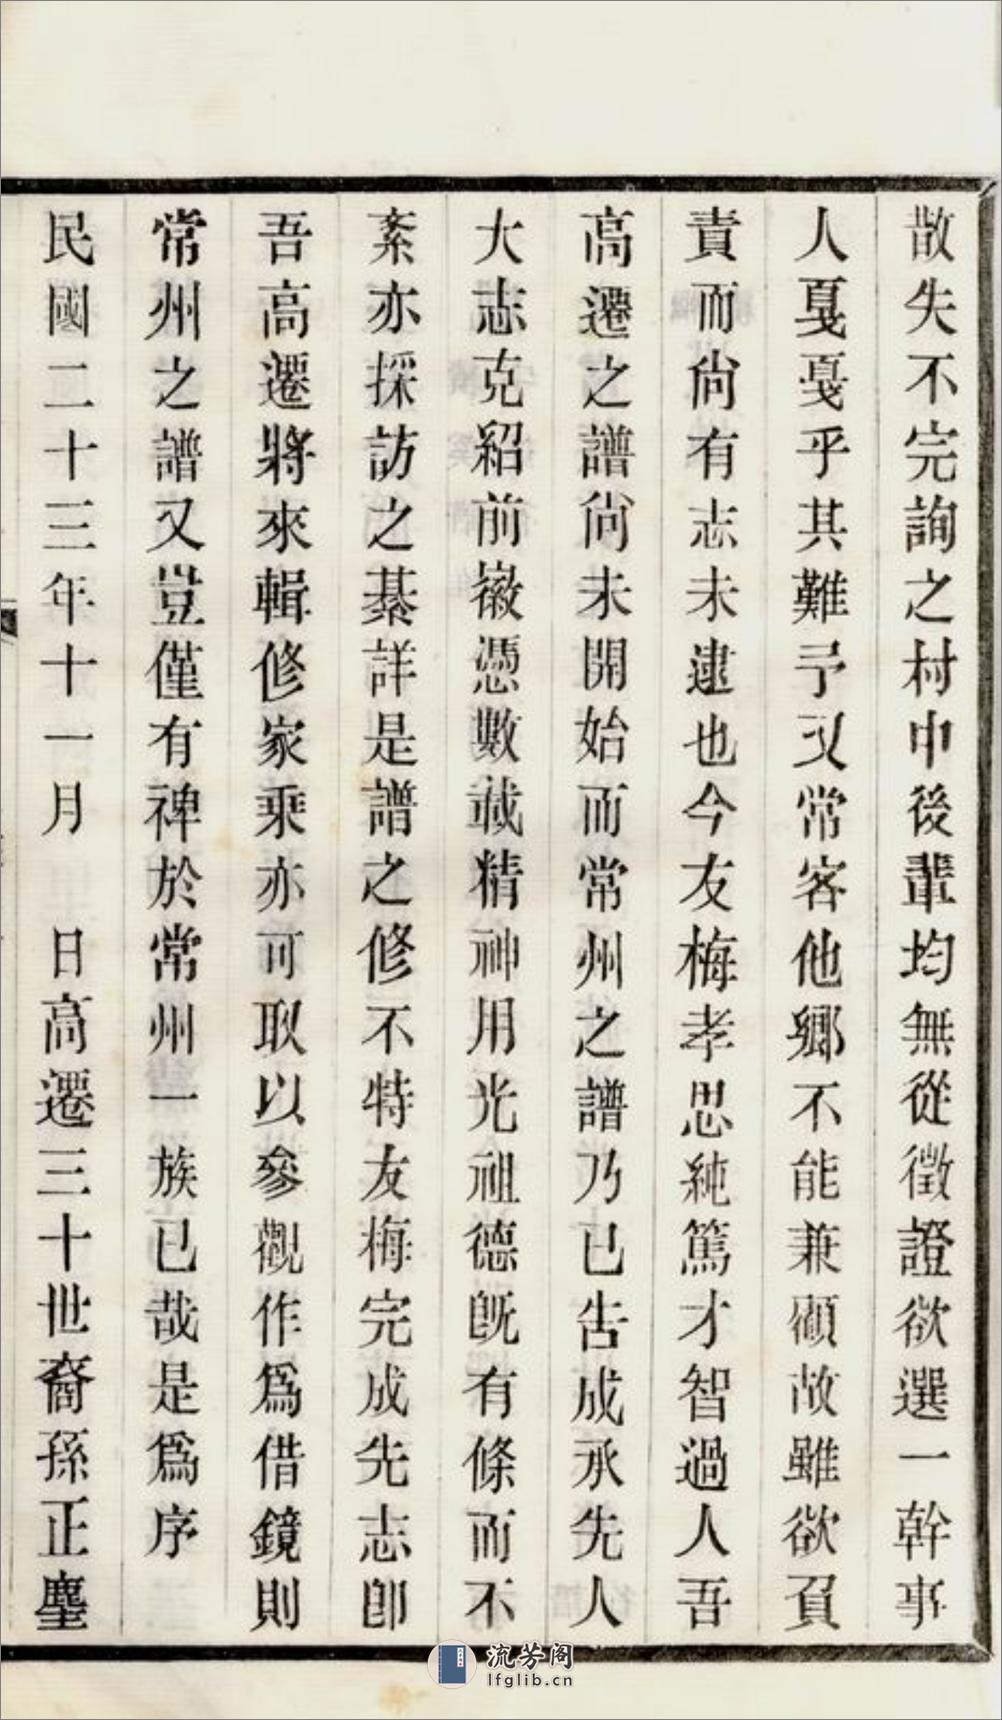 散失不完詢之村中後輩均無從徵證欲選一幹事
人戛戛乎其難予又常客他鄉不能兼顧故雖欲負
責而尙有志未逮也今友梅孝思純篤才智過人吾
高遷之譜尙未開始而常州之譜乃已告成承先人
大志克紹前徽憑數載精神用光祖德旣有條而不
紊亦採訪之綦詳是譜之修不特友梅完成先志卽
吾高遷將來輯修家乘亦可取以參觀作爲借鏡則
常州之譜又豈僅有裨於常州一族已哉是爲序
民國二十三年十一月　日高遷三十世裔孫正塵
流芳阁
lfglib.cn